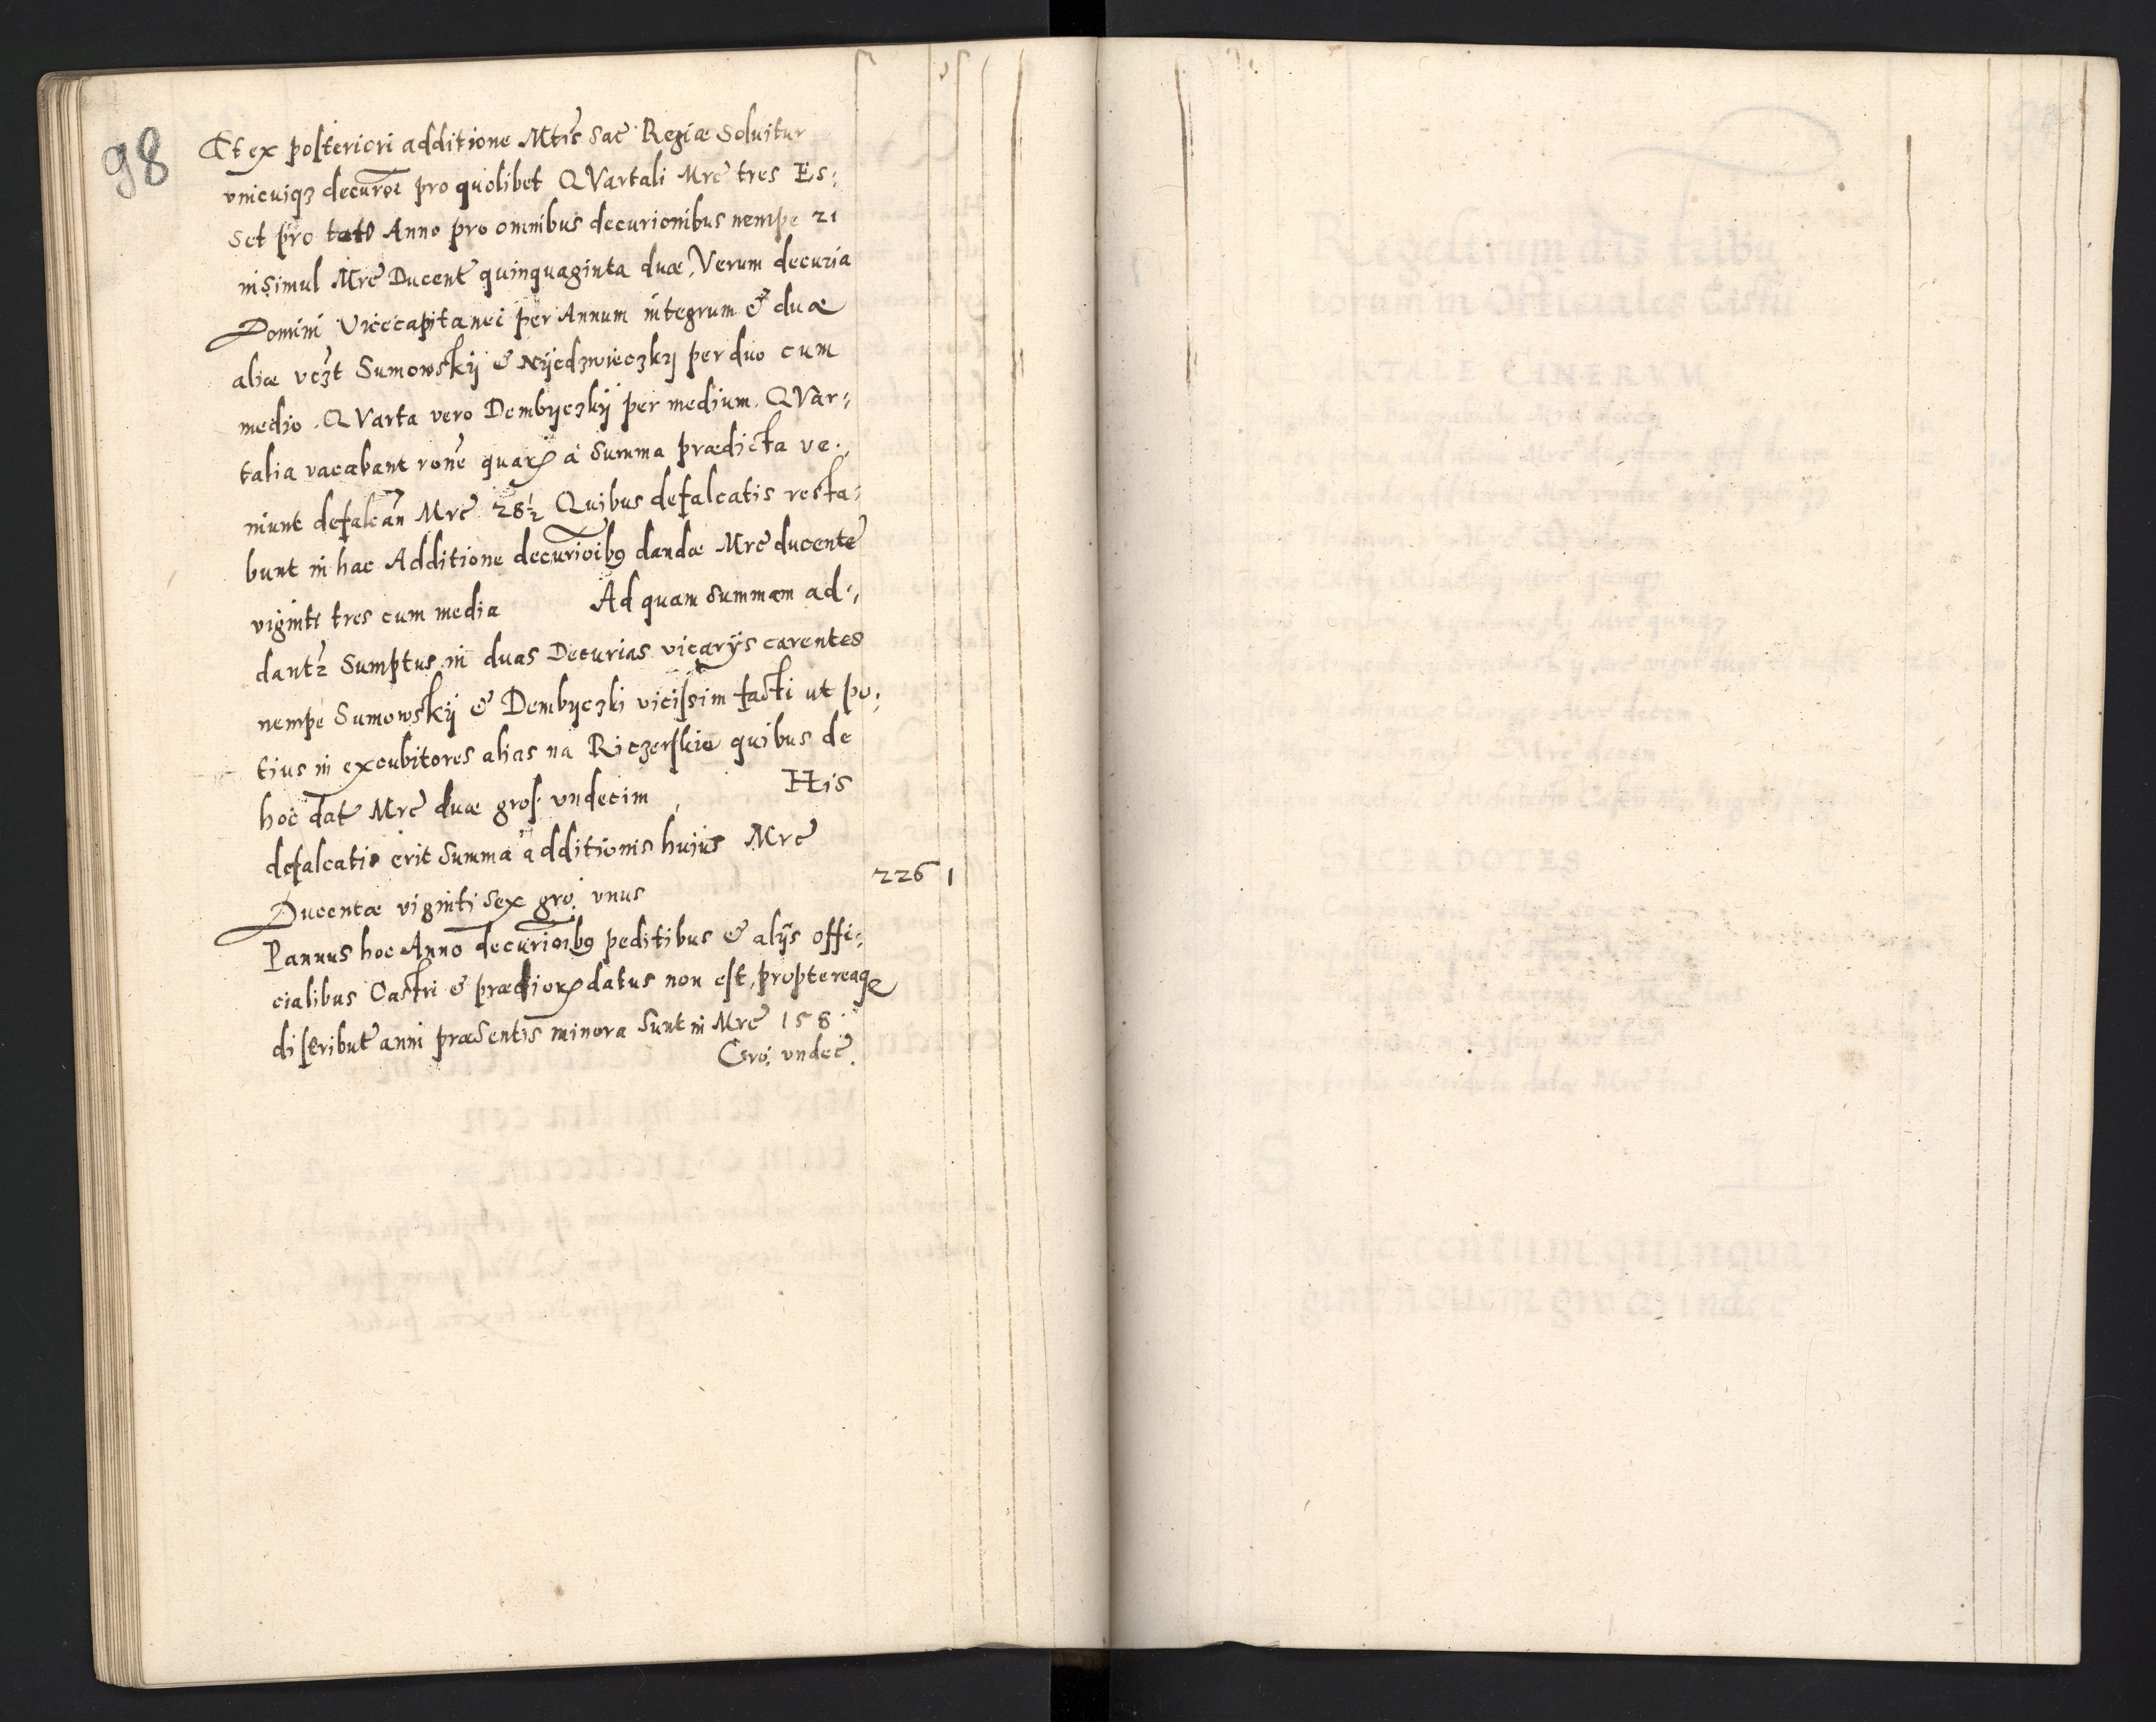 98
At ex posteriori additione Mtis Sac Regiæ Soluitur
vnicuiqз decuroi pro quolibet QVartali Mrc tres Es:
Set pro toto Anno pro omnibus decurionibus nempe 21
insimul Mrc Ducent quinquaginta duæ, Verum decuria
Domini Vicecapitanei per Annum integrum & duæ
aliæ vczt Sumowskij & Nijedzwieczkij per duo cum
medio. QVarta vero Dembyczkij per medium. QVar:,
talia vacabant rone quarꝝ a Summa prædicta ve:,
niunt defalcan Mrc 28½ Quibus defalcatis resta:
bunt in hac Additione decurioibꝰ dandæ Mrc ducente
viginti tres cum media Ad quam summam ad:,
dantr Sumptus in duas Decurias vicarijs carentes
nempe Sumowskij & Dembyczki vicissim facti ut po:
tius in excubitores alias na Riczerskie quibus de
hoc dat Mrc duæ gros. vndecim, His
defalcatis erit Summa additionis huius Mrc
Ducentæ viginti sex gro. vnus 226 1
Pannus hoc Anno decurioibꝰ peditibus & alijs offi:
cialibus Castri & prædiorꝝ datus non est, proptereaqꝫ
distribut anni præsentis minora sunt in Mrc 158.
Gro. vndec.